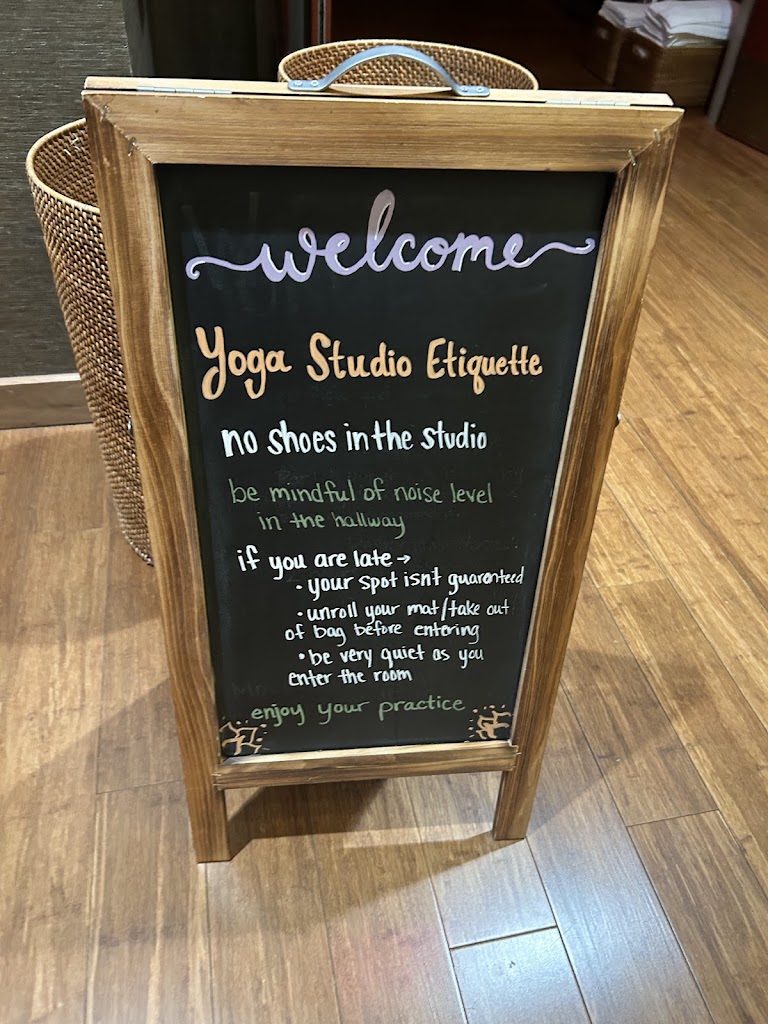 welcome
Yoga Studio Etiquette
no shoes in the studio
be mindful of noise level
in the hallway
if you are late →
• your spot isn't guaranteed
• unroll your mat/take out
of bag before entering
• be very quiet as you
enter the room
enjoy your practice